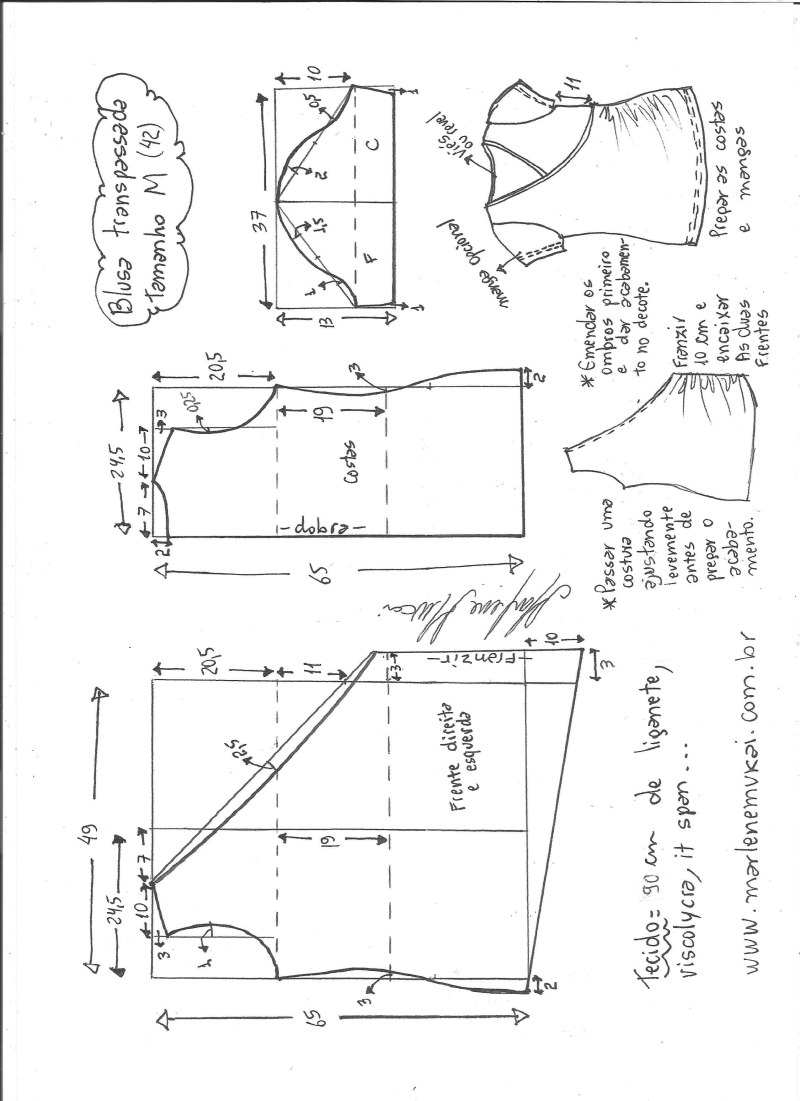 Blusa transpassada
tamanho M (42)
37
10
13
0,5
2
1,5
1
F
C
1
1
viés
ou revel
manga opcional
11
Preparar as costas
e mangas
24,5
7
10
3
2
20,5
0,25
19
3
2
65
Costas
-dobra-
*Emendar os
ombros primeiro
e dar acabamen-
to no decote.
Franzir
10 cm e
encaixar
As duas
Frentes
*Passar uma
costura
ajustando
levemente
antes de
prepar o
acaba-
mento.
49
24,5
10
7
3
1
20,5
11
2,5
19
3
3
2
10
3
65
-Franzir-
Frente direita
e esquerda
Tecido= 90 cm de liganete,
viscolycra, it span...
www.marlenemukai.com.br